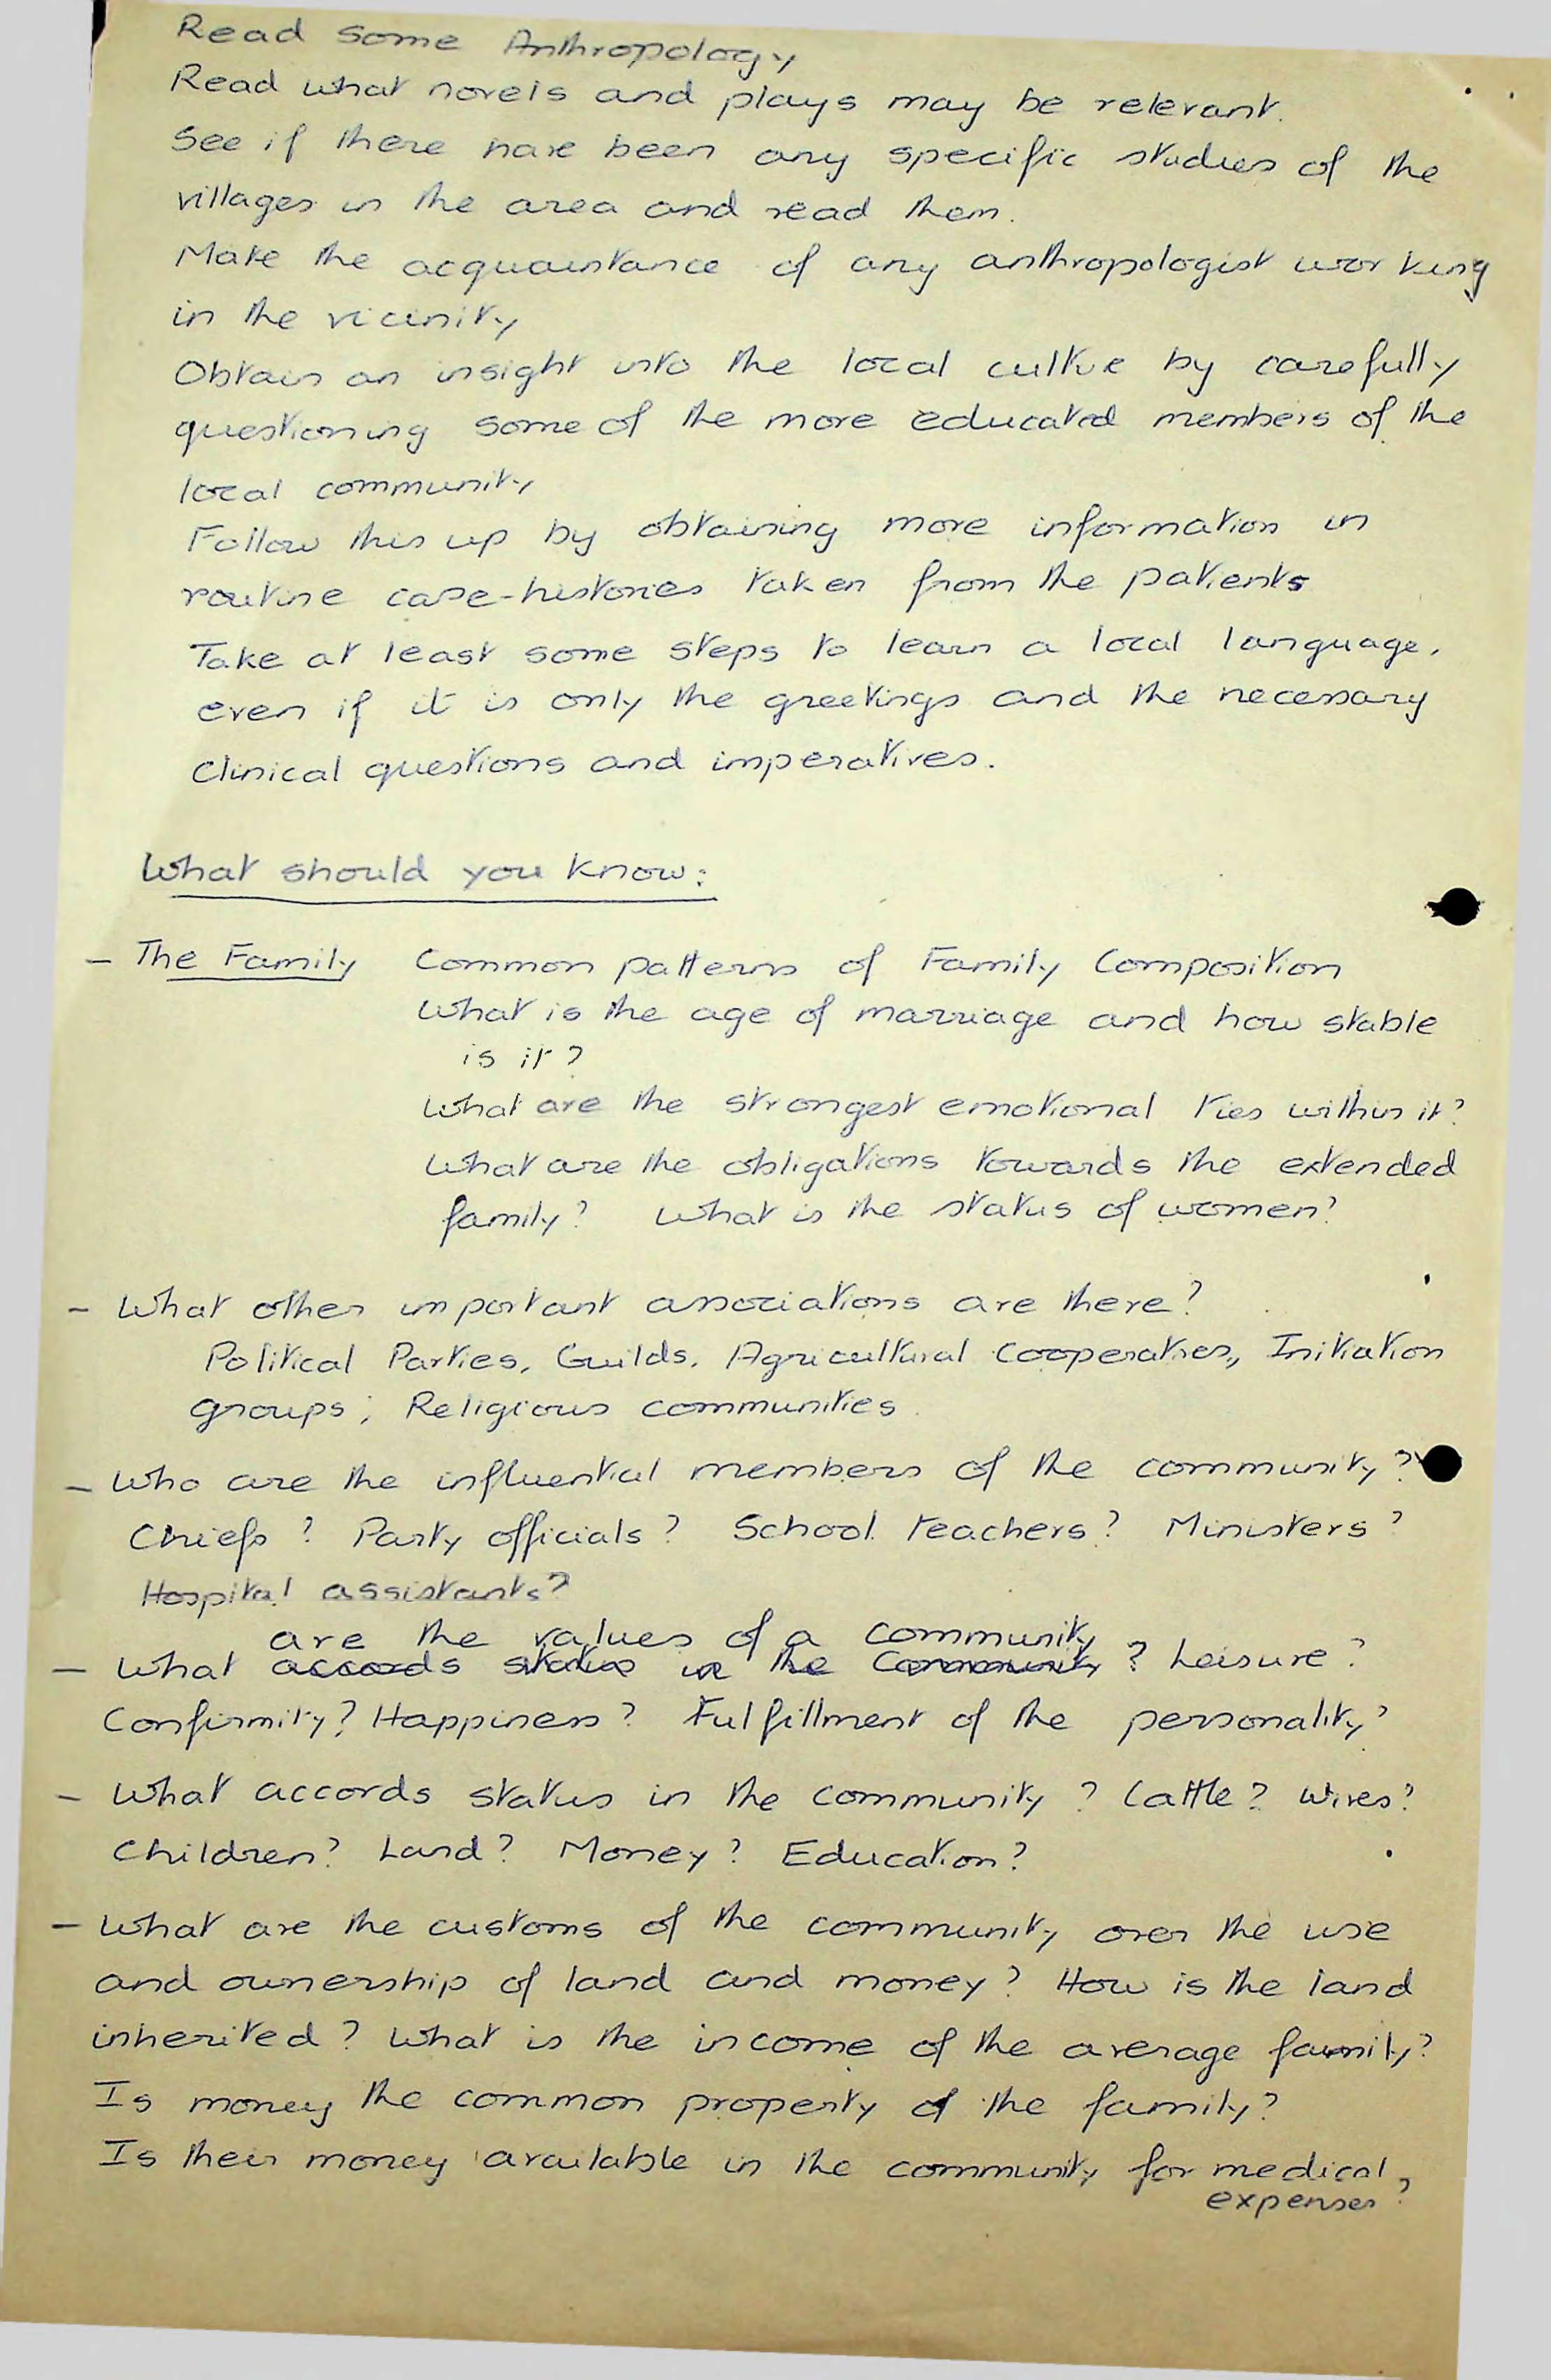 Read some Anthropology
Read what novels and plays may be relevant.
See if there have been any specific studies of the
villages in the area and read them.
Make the acquaintance of any anthropologist working
in the vicinity
Obtain an insight into the local culture by carefully
questioning some of the more educated members of the
local community
Follow this up by obtaining more information in
routine case-histories taken from the patients
Take at least some steps to learn a local language,
even if it is only the greetings and the necessary
clinical questions and imperatives.
What should you know:
- The Family Common patterns of Family Composition
What is the age of marriage and how stable
is it?
What are the strongest emotional ties within it?
What are the obligations towards the extended
family? What is the status of women?
- What other important associations are there?
Political Parties, Guilds, Agricultural Cooperatives, Initiation
groups; Religious communities.
- Who are the influential members of the community?
Chiefs? Party officials? School teachers? Ministers?
Hospital assistants?
are the values of a community
- What accords status in the Community? Leisure?
Confirmity? Happiness? Fulfillment of the personality?
- What accords status in the community? Cattle? Wives?
Children? Land? Money? Education?
- What are the customs of the community over the use
and ownership of land and money? How is the land
inherited? What is the income of the average family?
Is money the common property of the family?
Is their money available in the community for medical
expenses?